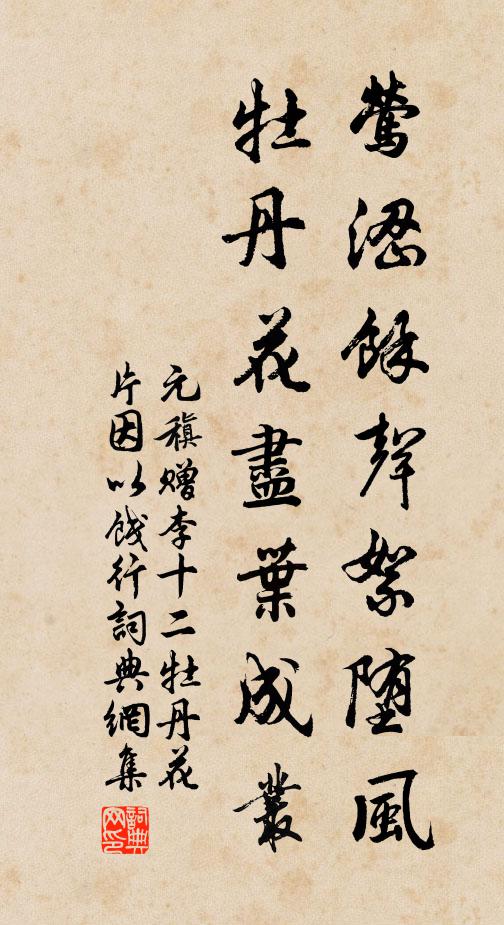 鶯澀餘聲絮墮風
牡丹花盡葉成叢
元稹赠李十二牡丹花
片因以餞行詞典網集
詞典网印